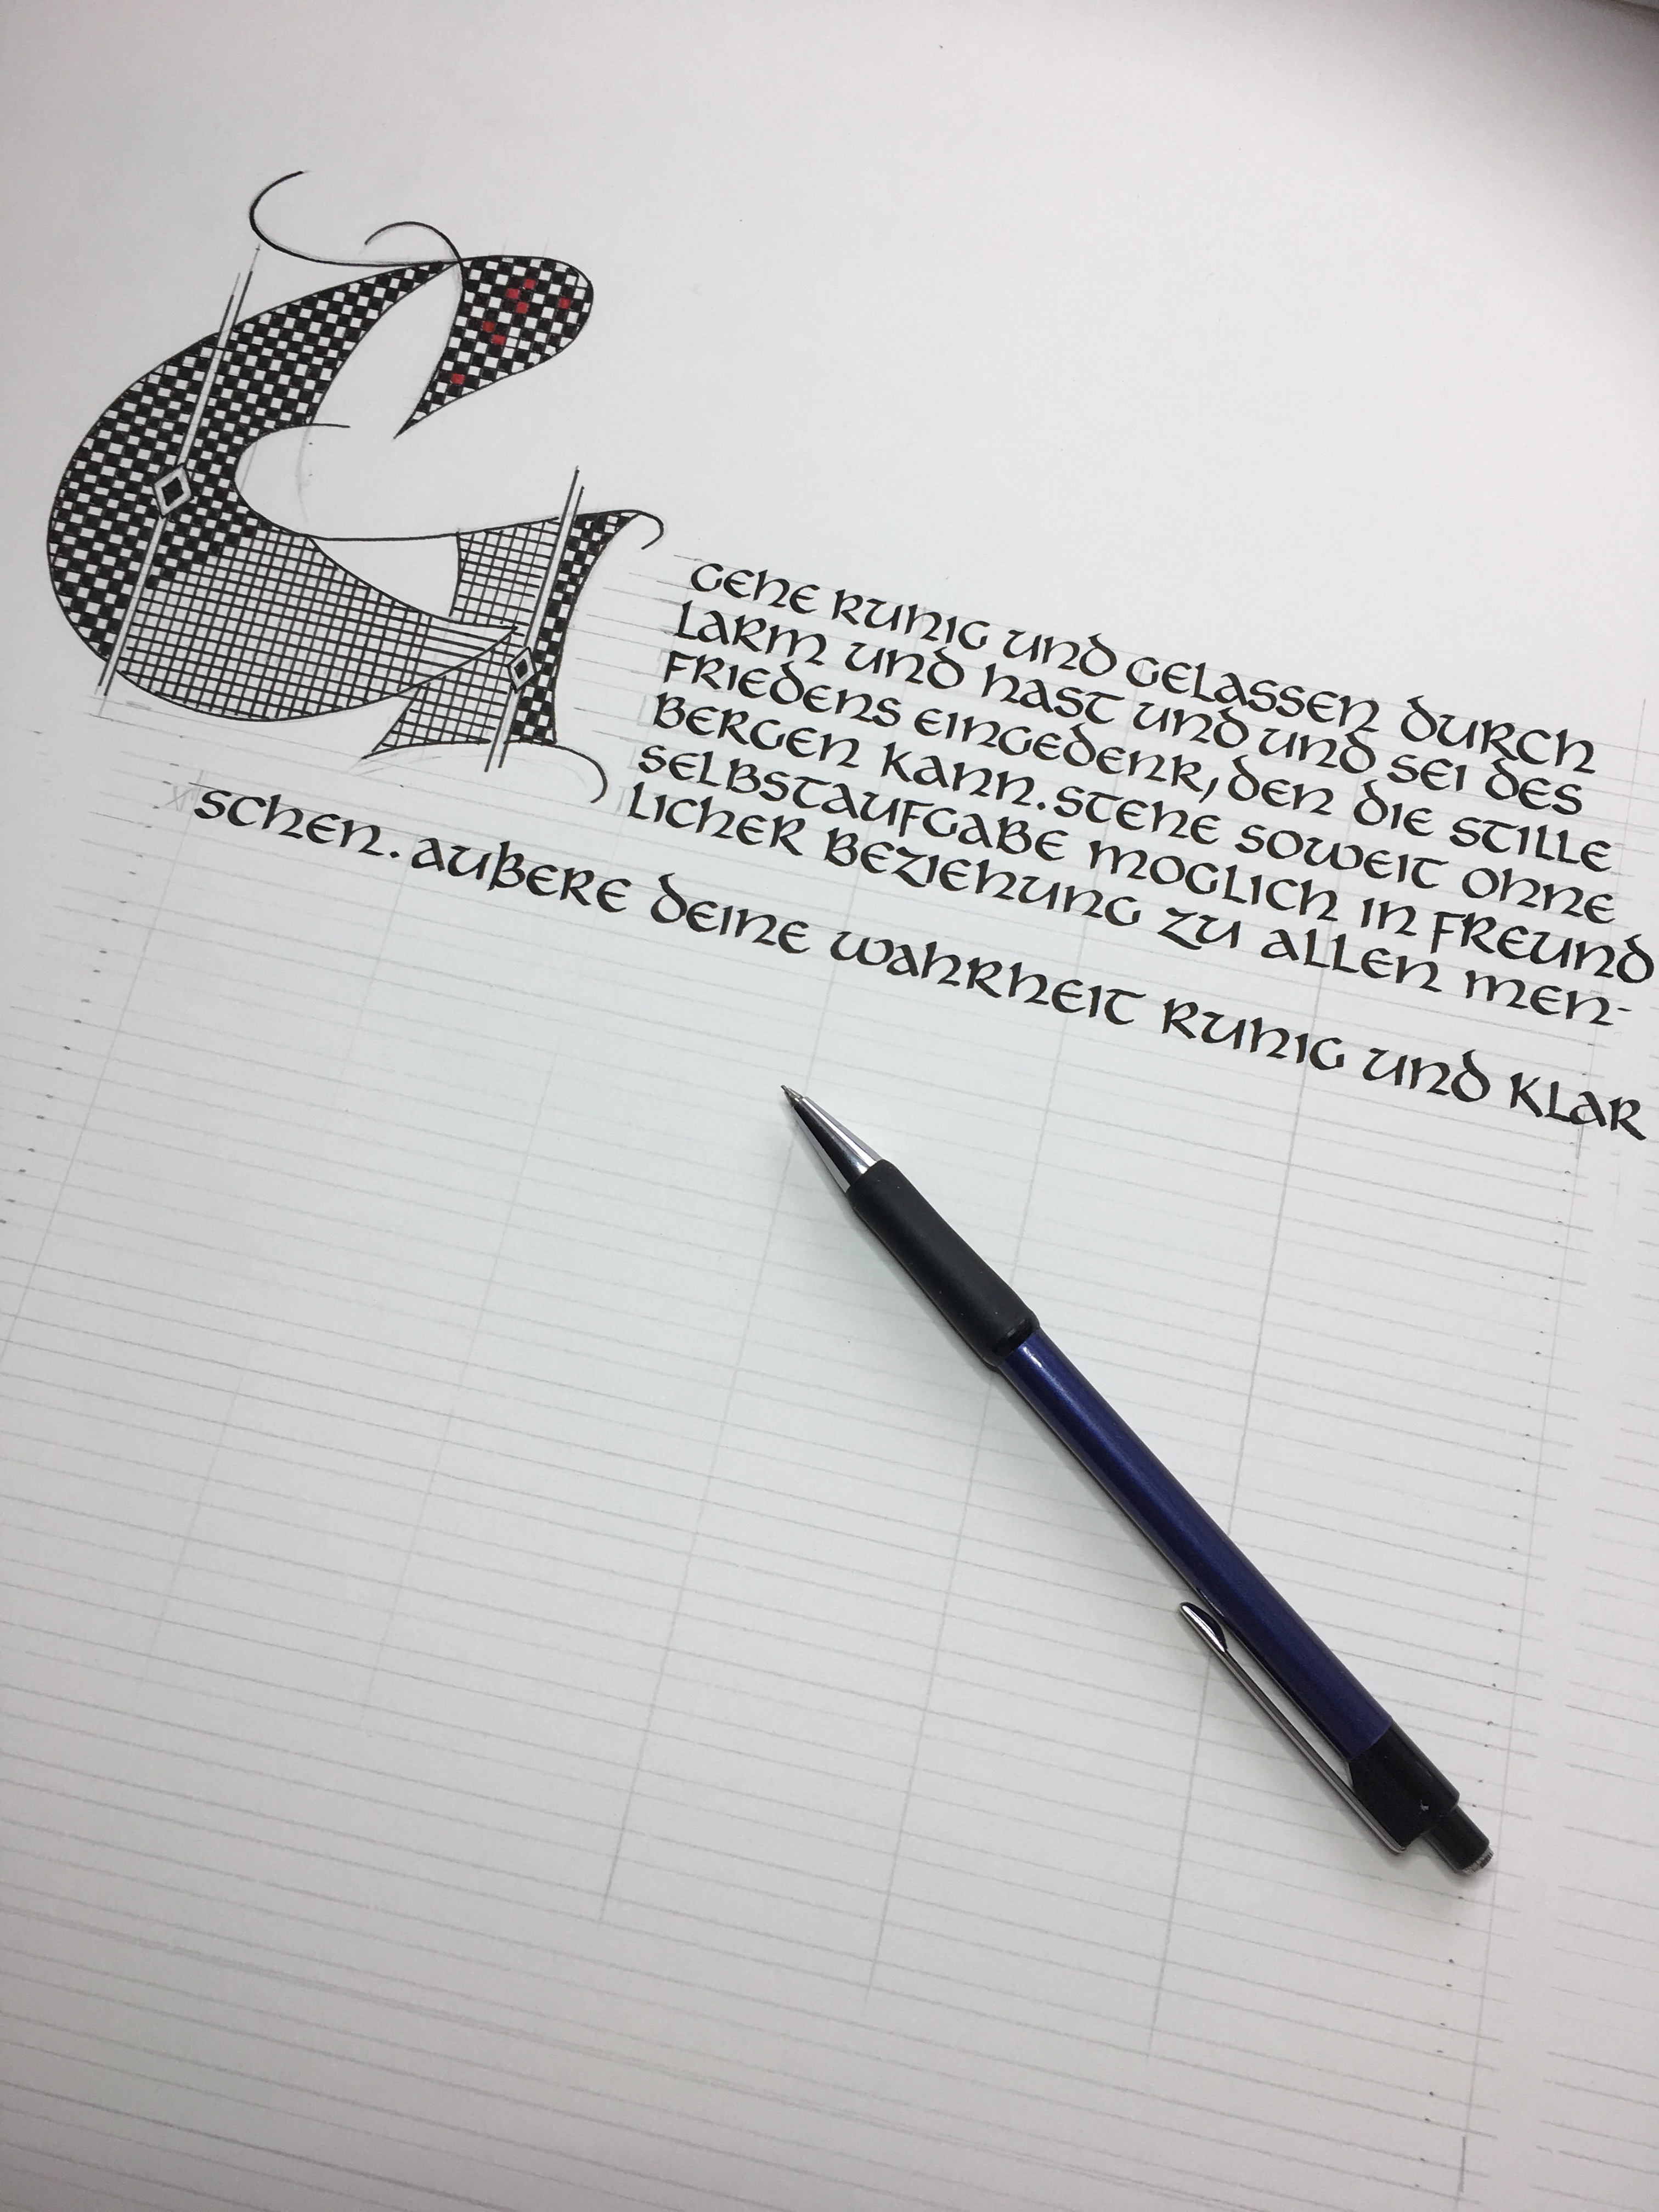 G
GEHE RUHIG UND GELASSEN DURCH
LARM UND HAST UND UND SEI DES
FRIEDENS EINGEDENK, DEN DIE STILLE
BERGEN KANN. STEHE SOWEIT OHNE
SELBSTAUFGABE MOGLICH IN FREUND
LICHER BEZIEHUNG ZU ALLEN MEN-
SCHEN. AUßERE DEINE WAHRHEIT RUHIG UND KLAR